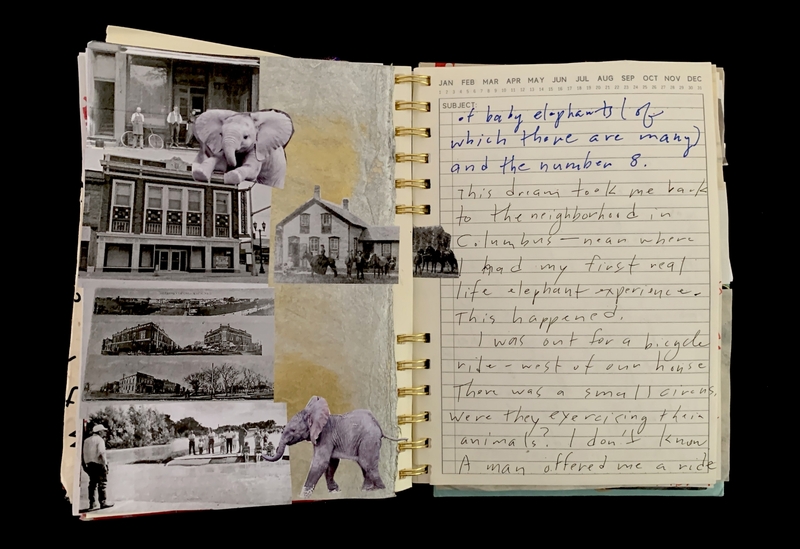 JAN FEB MAR APR MAY JUN JUL AUG SEP OCT NOV DEC
SUBJECT
of baby elephants (of
which there are many)
and the number 8.
This dream took me back
to the neighborhood in
Columbus — near where
I had my first real
life elephant experience.
This happened.
I was out for a bicycle
ride - west of our house
There was a small circus.
Were they exercising their
animals? I don't know
A man offered me a ride